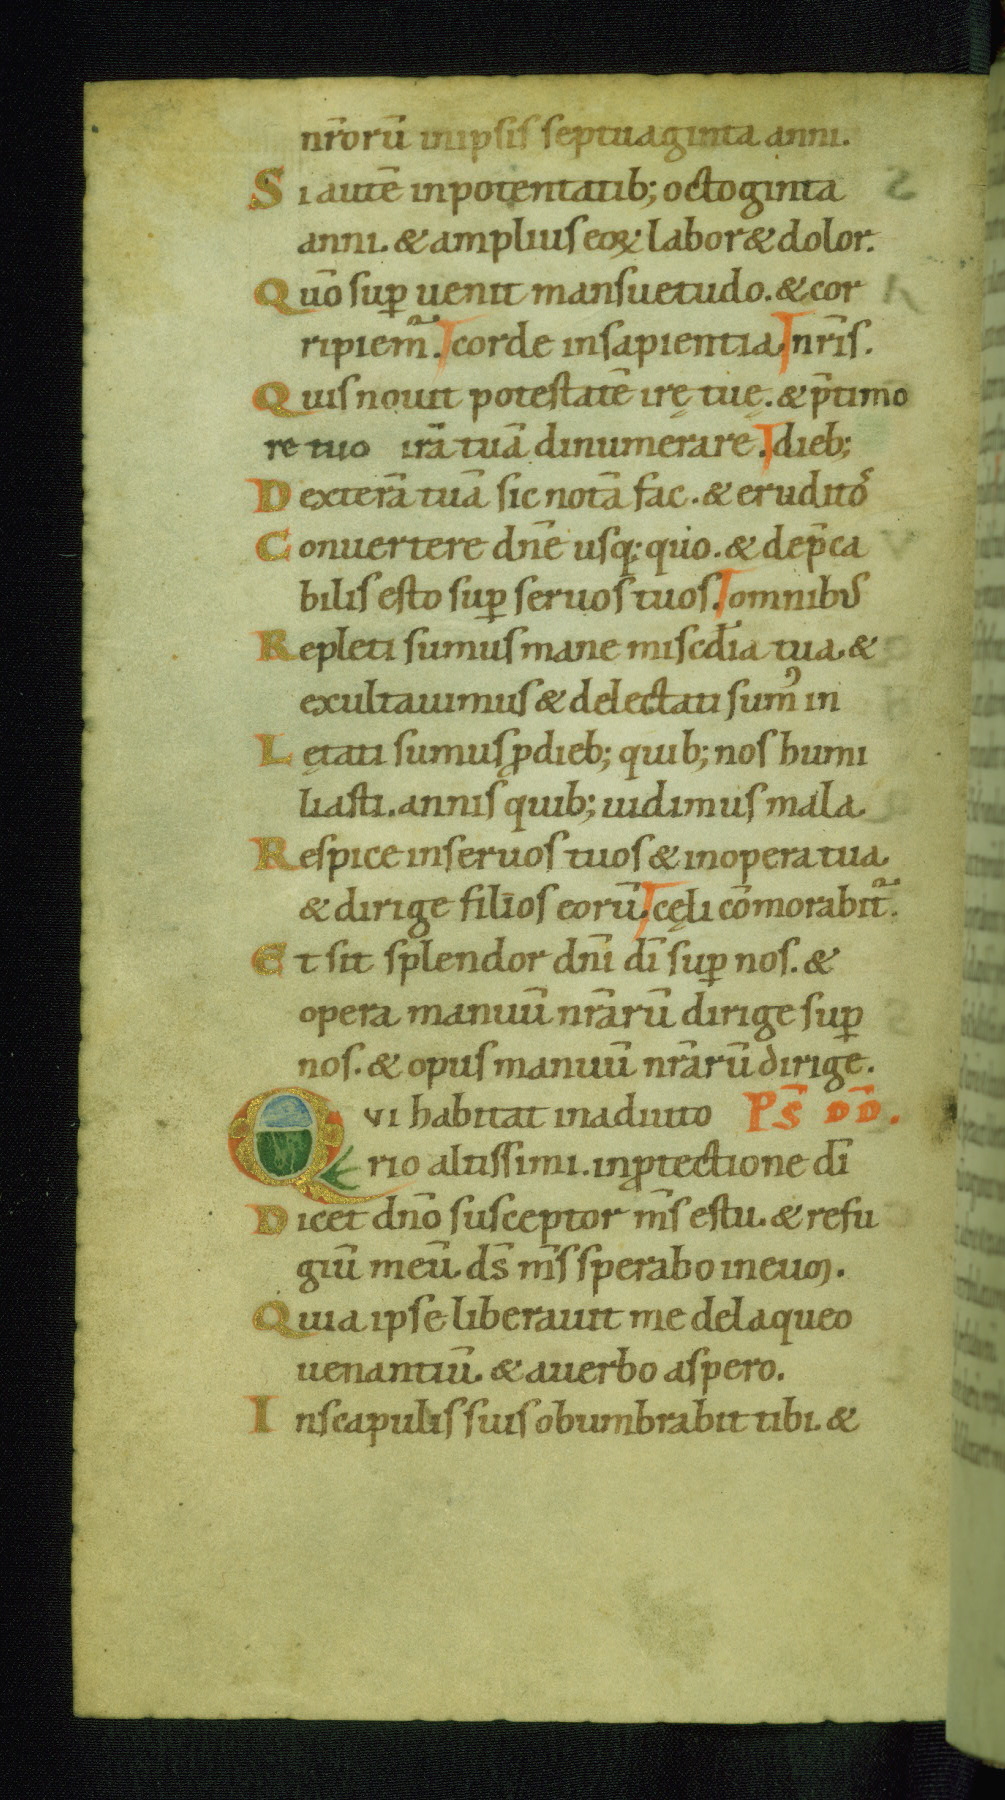 nr̄orū in ipsis septuaginta anni.
Si autē in potentatib; octoginta
anni. & amplius eoꝝ labor & dolor.
Quō suꝑ uenit mansuetudo. & cor
ripiem̃. corde in sapientia nr̄is.
Quis nouit potestatē irę tuę. & p̄ timo
re tuo irā tuā dinumerare. dieb;
Dexterā tuā sic notā fac. & eruditoˢ
Conuertere dn̄e usq; quo. & dep̄ca
bilis esto suꝑ seruos tuos. omnibus
Repleti sumus mane misc̄dia tua. &
exultauimus & delectati sum᾽ in
Lętati sumus ꝓ dieb; quib; nos humi
liasti. annis quib; uidimus mala.
Respice in seruos tuos & in opera tua.
& dirige filios eorū. cęli cōmorabit̃.
Et sit splendor dn̄i dī suꝑ nos. &
opera manuū nr̄arū dirige suꝑ
nos. & opus manuū nr̄arū dirige.
Qui habitat in adiuto PS̄ DD̄.
rio altissimi. in ꝓtectione dī
Dicet dn̄o susceptor m̄s es tu. & refu
giū meū. ds̄ m̄s sperabo in eum.
Quia ipse liberauit me de laqueo
uenantiū. & a uerbo aspero.
In scapulis suis obumbrabit tibi. &